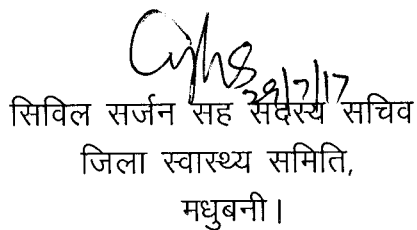 28/7/17
सिविल सर्जन सह सदस्य सचिव
जिला स्वास्थ्य समिति,
मधुबनी।